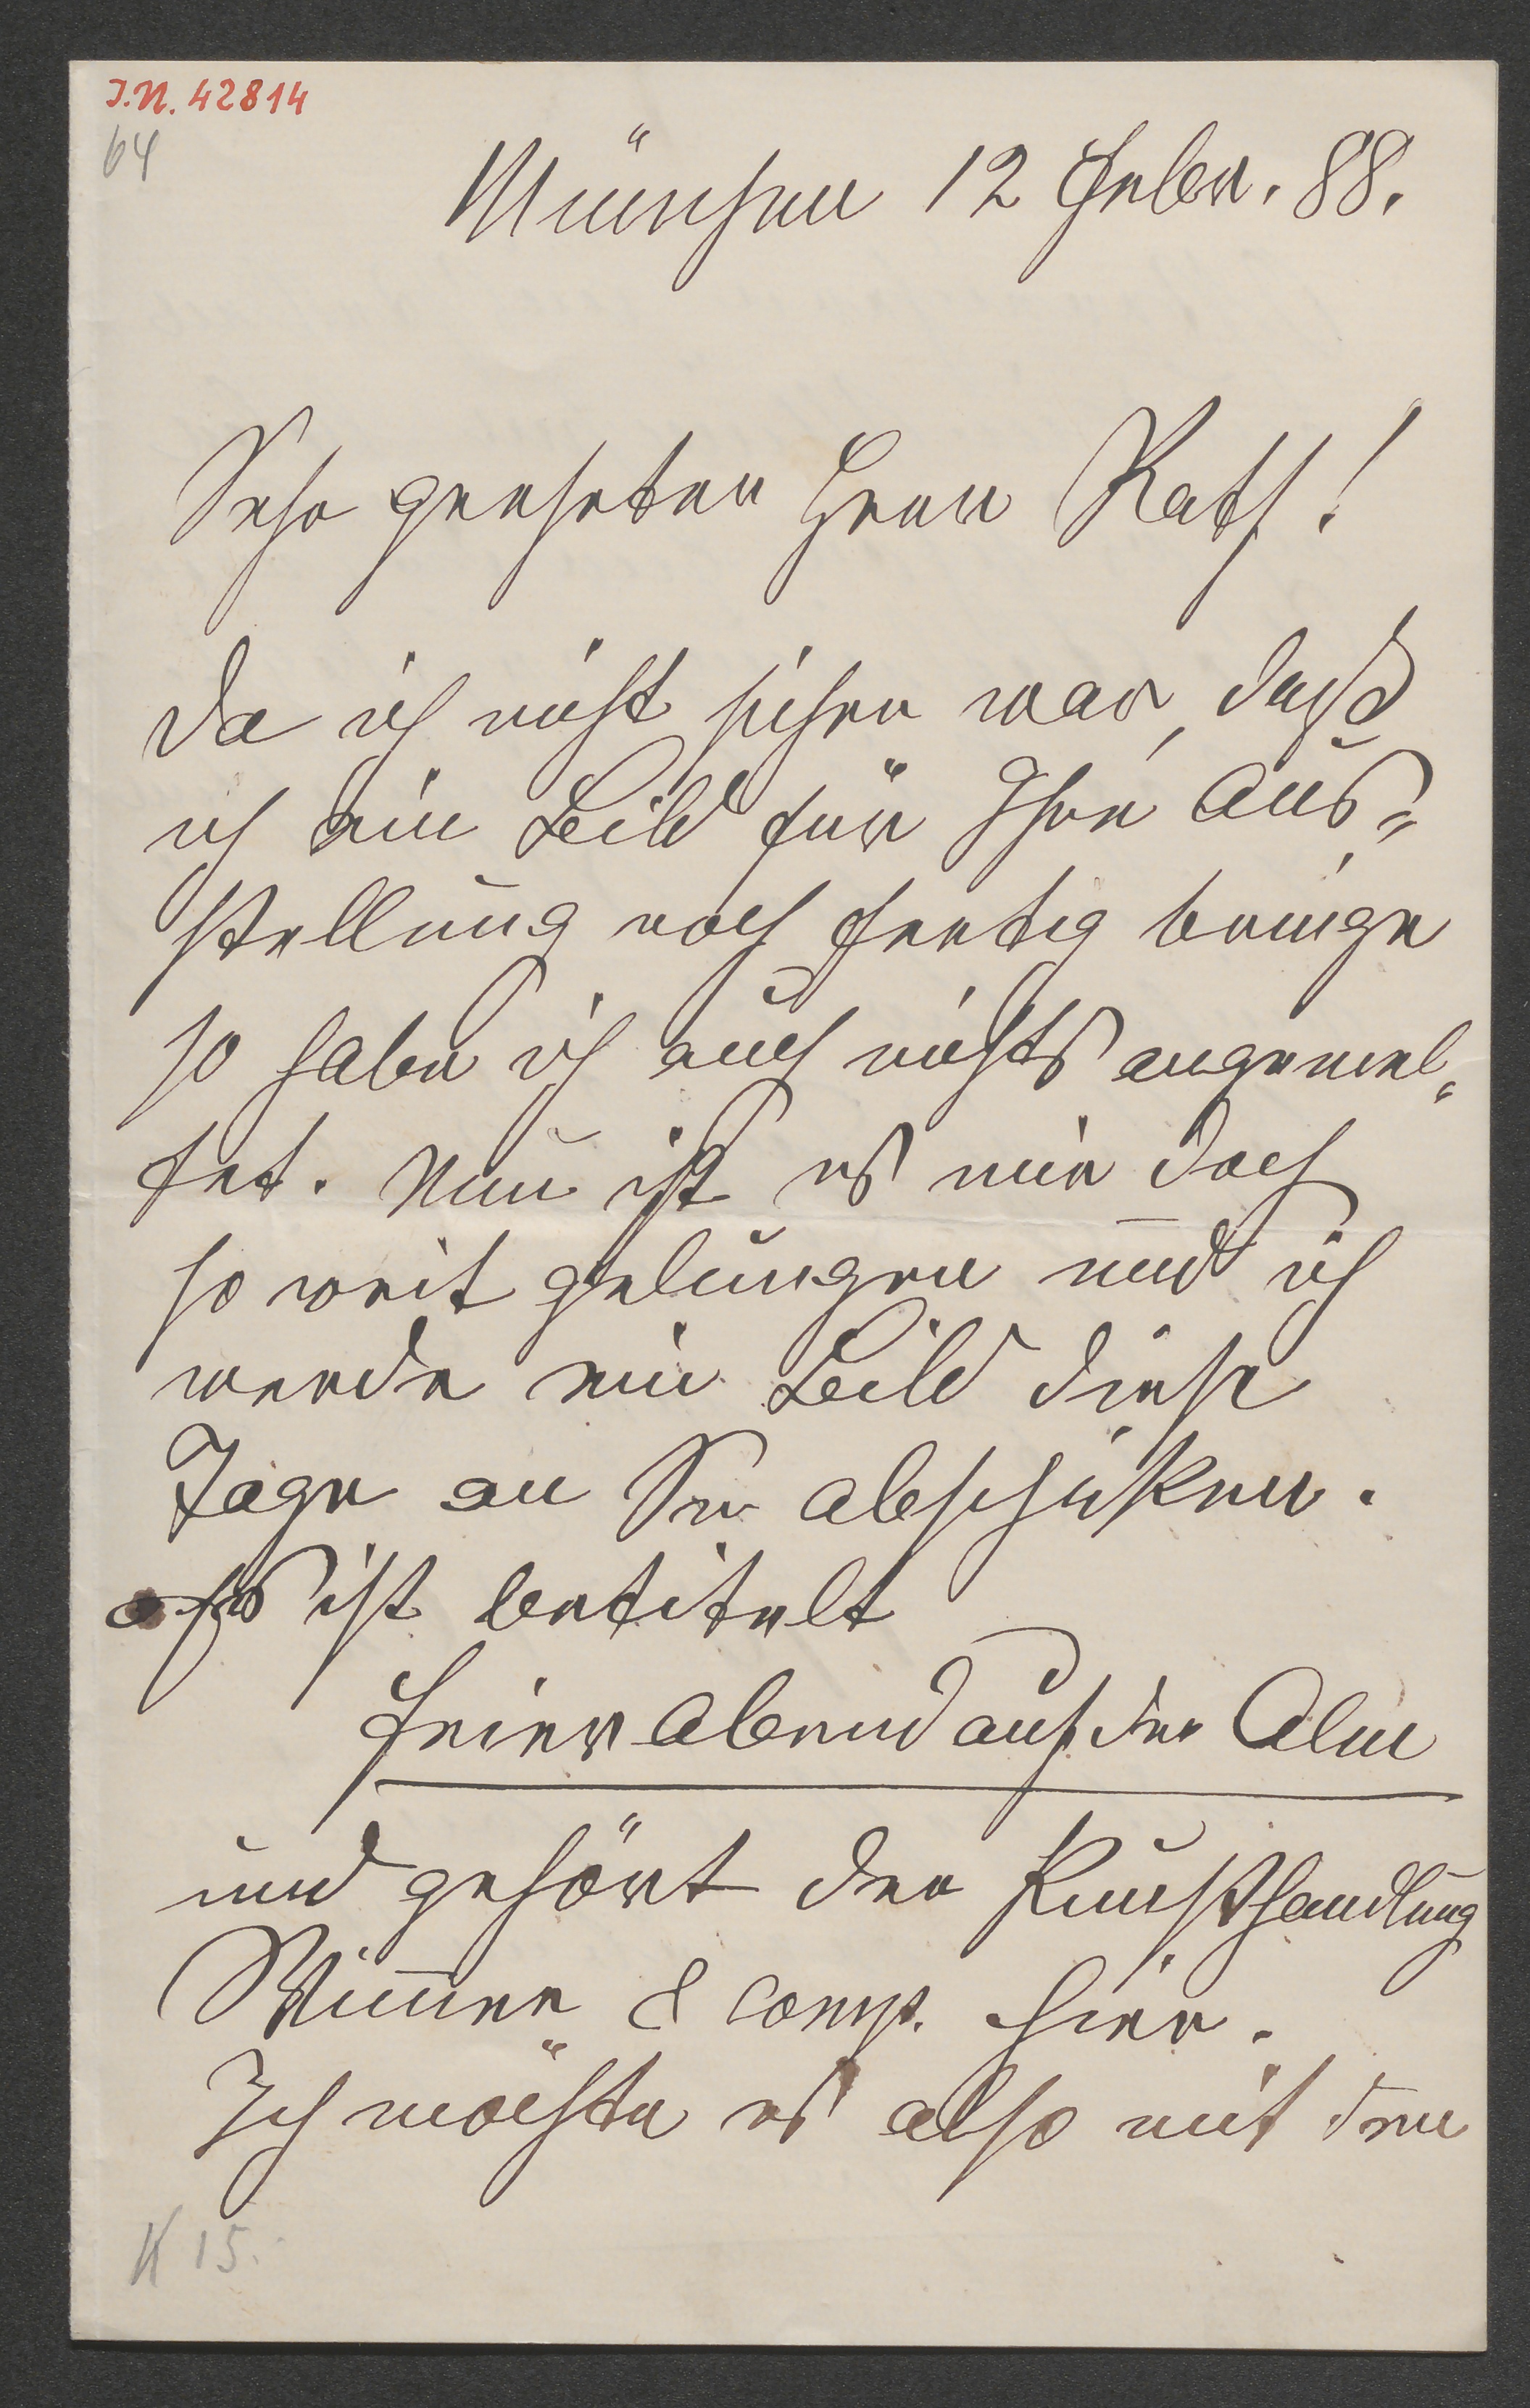 I.N. 42814
64
München 12 Febr. 88.
Sehr geehrter Herr Rath!
Da ich nicht sicher war, dass
ich ein Bild für Ihre Aus=
stellung noch fertig bringe
so habe ich auch nichts angemel=
det. Nun ist es mir doch
so weit gelungen und ich
werde ein Bild diese
Tage an Sie abschicken.
Es ist betitelt
Feierabend auf der Alm
und gehört der Kunsthandlung
Wimmer & Comp. hier.
Ich möchte es also mit dem
K 15.